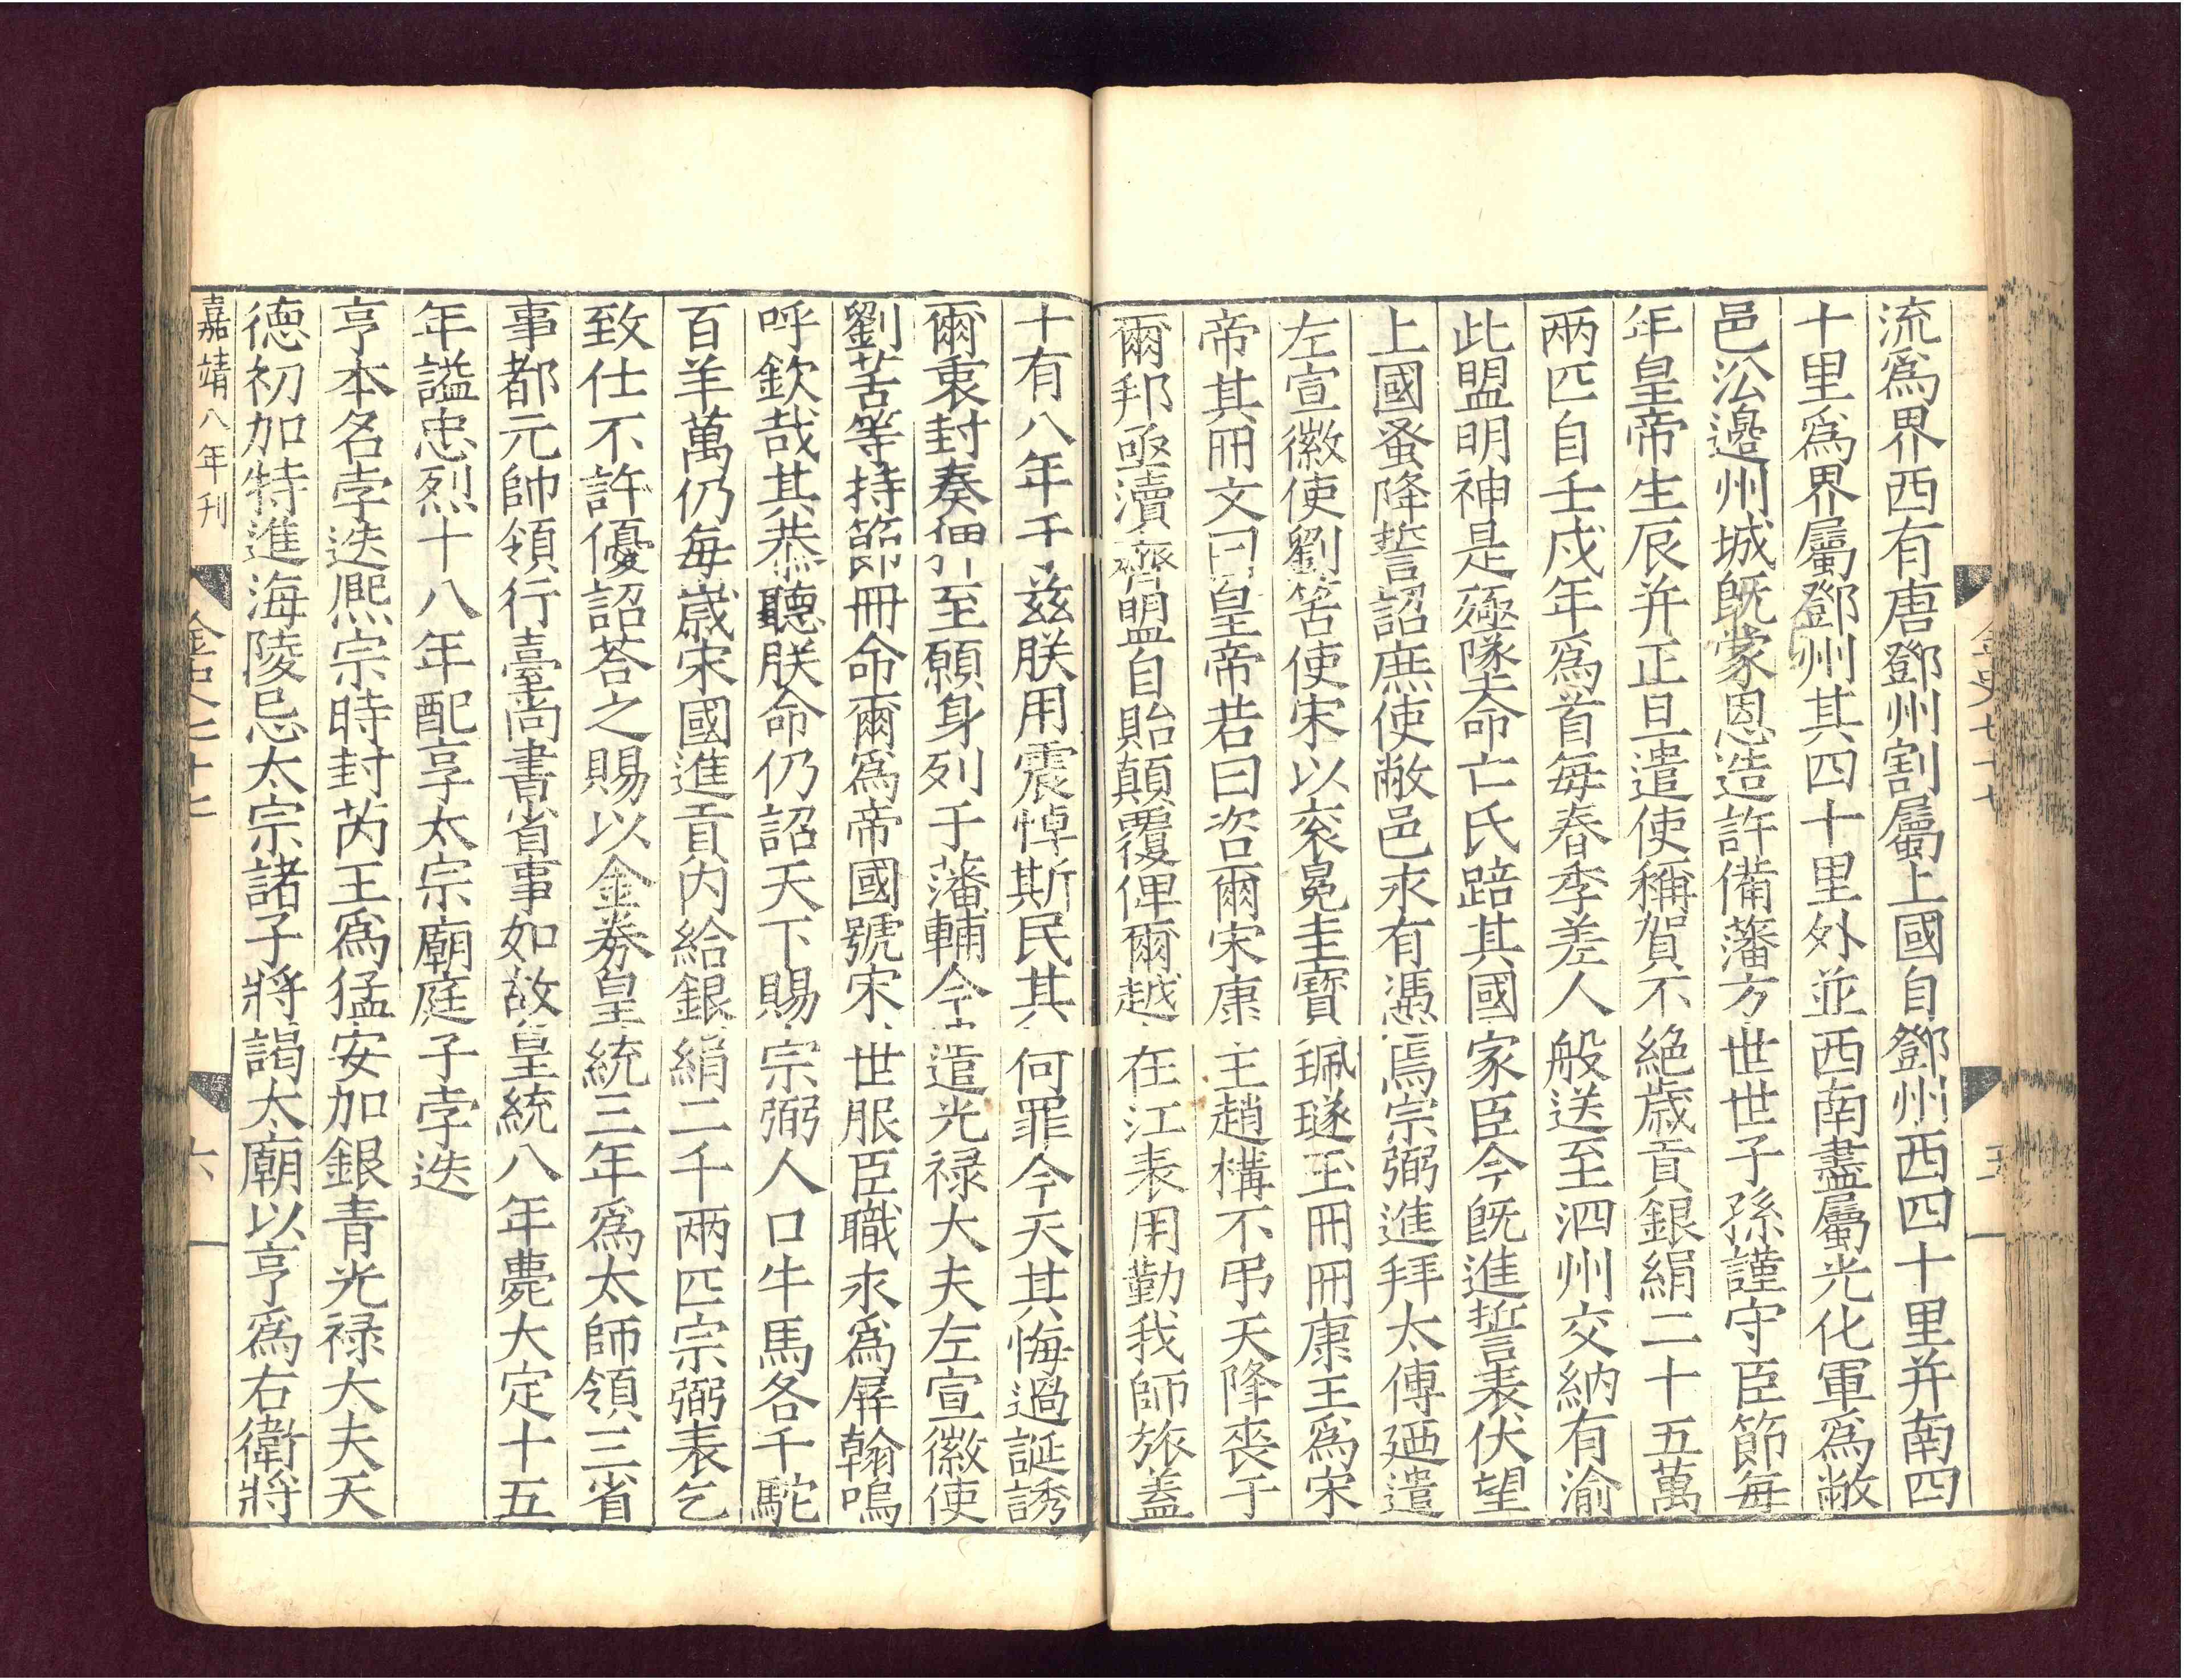 流爲界西有唐鄧州割屬上國自鄧州西四十里并南四
十里爲界屬鄧州其四十里外並西南盡屬光化軍爲敝
邑㳂邊州城旣蒙恩造許備藩方世世子孫謹守臣節每
年皇帝生辰并正旦遣使稱賀不絶歲貢銀絹二十五萬
兩匹自壬戌年爲首每春季差人般送至泗州交納有渝
此盟明神是殛墜命亡氏踣其國家臣今旣進誓表伏望
上國蚤降誓詔庶使敝邑永有憑焉宗弼進拜太傅廼遣
左宣徽使劉筈使宋以衮冕圭寶珮璲玉冊冊康王爲宋
帝其冊文曰皇帝若曰咨爾宋康王趙構不弔天降喪于
爾邦亟瀆齊盟自貽顛覆俾爾越在江表用勤我師旅蓋
金史七十七
五
十有八年于兹朕用震悼斯民其何罪今天其悔過誕誘
爾衷封奏狎至願身列于藩輔今遣光禄大夫左宣徽使
劉筈等持節冊命爾爲帝國號宋世服臣職永爲屏翰嗚
呼欽哉其恭聽朕命仍詔天下賜宗弼人口牛馬各千駝
百羊萬仍每歲宋國進貢内給銀絹二千兩匹宗弼表乞
致仕不許優詔荅之賜以金券皇統三年爲太師領三省
事都元帥領行臺尚書省事如故皇統八年薨大定十五
年謚忠烈十八年配享太宗廟庭子孛迭
亨本名孛迭熈宗時封芮王爲猛安加銀青光禄大夫天
德初加特進海陵忌太宗諸子將謁太廟以亨爲右衛將
嘉靖八年刋
金史七十七
六